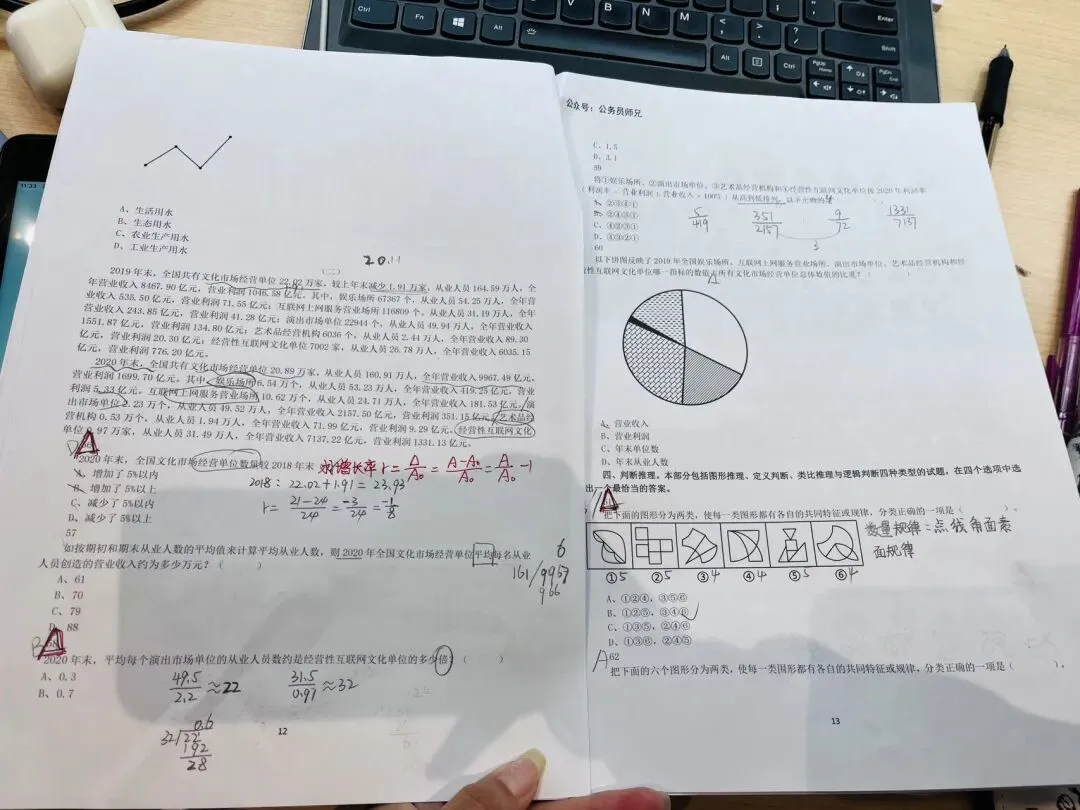 A、生活用水
B、生态用水
C、农业生产用水
D、工业生产用水
(二)
20.11
2019 年末，全国共有文化市场经营单位 22.02 万家，较上年末减少 1.91 万家，从业人员 164.59 万人，全
年营业收入 8467.90 亿元，营业利润 1046.58 亿元。其中，娱乐场所 67367 个，从业人员 54.25 万人，全年营
业收入 535.50 亿元，营业利润 71.55 亿元；互联网上网服务营业场所 116809 个，从业人员 31.19 万人，全年
营业收入 243.85 亿元，营业利润 41.28 亿元；演出市场单位 22944 个，从业人员 49.94 万人，全年营业收入
1551.87 亿元，营业利润 134.80 亿元；艺术品经营机构 6036 个，从业人员 2.44 万人，全年营业收入 89.30
亿元，营业利润 20.30 亿元；经营性互联网文化单位 7002 家，从业人员 26.78 万人，全年营业收入 6035.15
亿元，营业利润 776.20 亿元。
2020 年末，全国共有文化市场经营单位 20.89 万家，从业人员 160.91 万人，全年营业收入 9967.49 亿元，
营业利润 1699.70 亿元。其中，娱乐场所 6.54 万个，从业人员 53.23 万人，全年营业收入 419.25 亿元，营业
利润 5.33 亿元，互联网上网服务营业场所 10.62 万个，从业人员 24.71 万人，全年营业收入 181.53 亿元，演
出市场单位 2.23 万个，从业人员 49.52 万人，全年营业收入 2157.50 亿元，营业利润 351.15 亿元，艺术品经
营机构 0.53 万个，从业人员 1.94 万人，全年营业收入 71.99 亿元，营业利润 9.29 亿元，经营性互联网文化
单位 0.97 万家，从业人员 31.49 万人，全年营业收入 7137.22 亿元，营业利润 1331.13 亿元。
D
2020 年末，全国文化市场经营单位数量较 2018 年末
增长率 r = A/A₀ = A-A₀/A₀ = A/A₀ - 1
A、增加了 5%以内
2018：22.02+1.91=23.93
B、增加了 5%以上
r = 21-24/24 = -3/24 = -1/8
C、减少了 5%以内
D、减少了 5%以上
57
如按期初和期末从业人数的平均值来计算平均从业人数，则 2020 年全国文化市场经营单位平均每名从业
人员创造的营业收入约为多少万元？（ ）
6
161/9967
966
A、61
B、70
C、79
D、88
B
58
2020 年末，平均每个演出市场单位的从业人员数约是经营性互联网文化单位的多少倍？（ ）
A、0.3
B、0.7
49.5/2.2≈22
31.5/0.97≈32
0.6
32/22
192
28
12
公众号：公务员师兄
C、1.5
D、3.1
59
将①娱乐场所、②演出市场单位、③艺术品经营机构和④经营性互联网文化单位按 2020 年利润率
（利润率 = 营业利润 ÷ 营业收入 × 100%）从高到低排列，以下正确的是
A、②③④①
B、②④③①
C、④②③①
D、④③②①
5/419
351/2157
9/72
1331/7137
3
60
以下拼图反映了 2019 年全国娱乐场所、互联网上网服务营业场所、演出市场单位、艺术品经营机构和经
营性互联网文化单位哪一指标的数值占所有文化市场经营单位总体数值的比重？（ ）
A
A、营业收入
B、营业利润
C、年末单位数
D、年末从业人数
四、判断推理。本部分包括图形推理、定义判断、类比推理与逻辑判断四种类型的试题，在四个选项中选
出一个最恰当的答案。
把下面的图形分为两类，使每一类图形都有各自的共同特征或规律，分类正确的一项是（ ）。
数量规律：点线角面素
面规律
①5 ②5 ③4 ④4 ⑤5 ⑥4
A、①②④，③⑤⑥
B、①②⑤，③④⑥
C、①③⑤，②④⑥
D、①③⑥，②④⑤
A
62
把下面的六个图形分为两类，使每一类图形都有各自的共同特征或规律，分类正确的一项是（ ）。
13